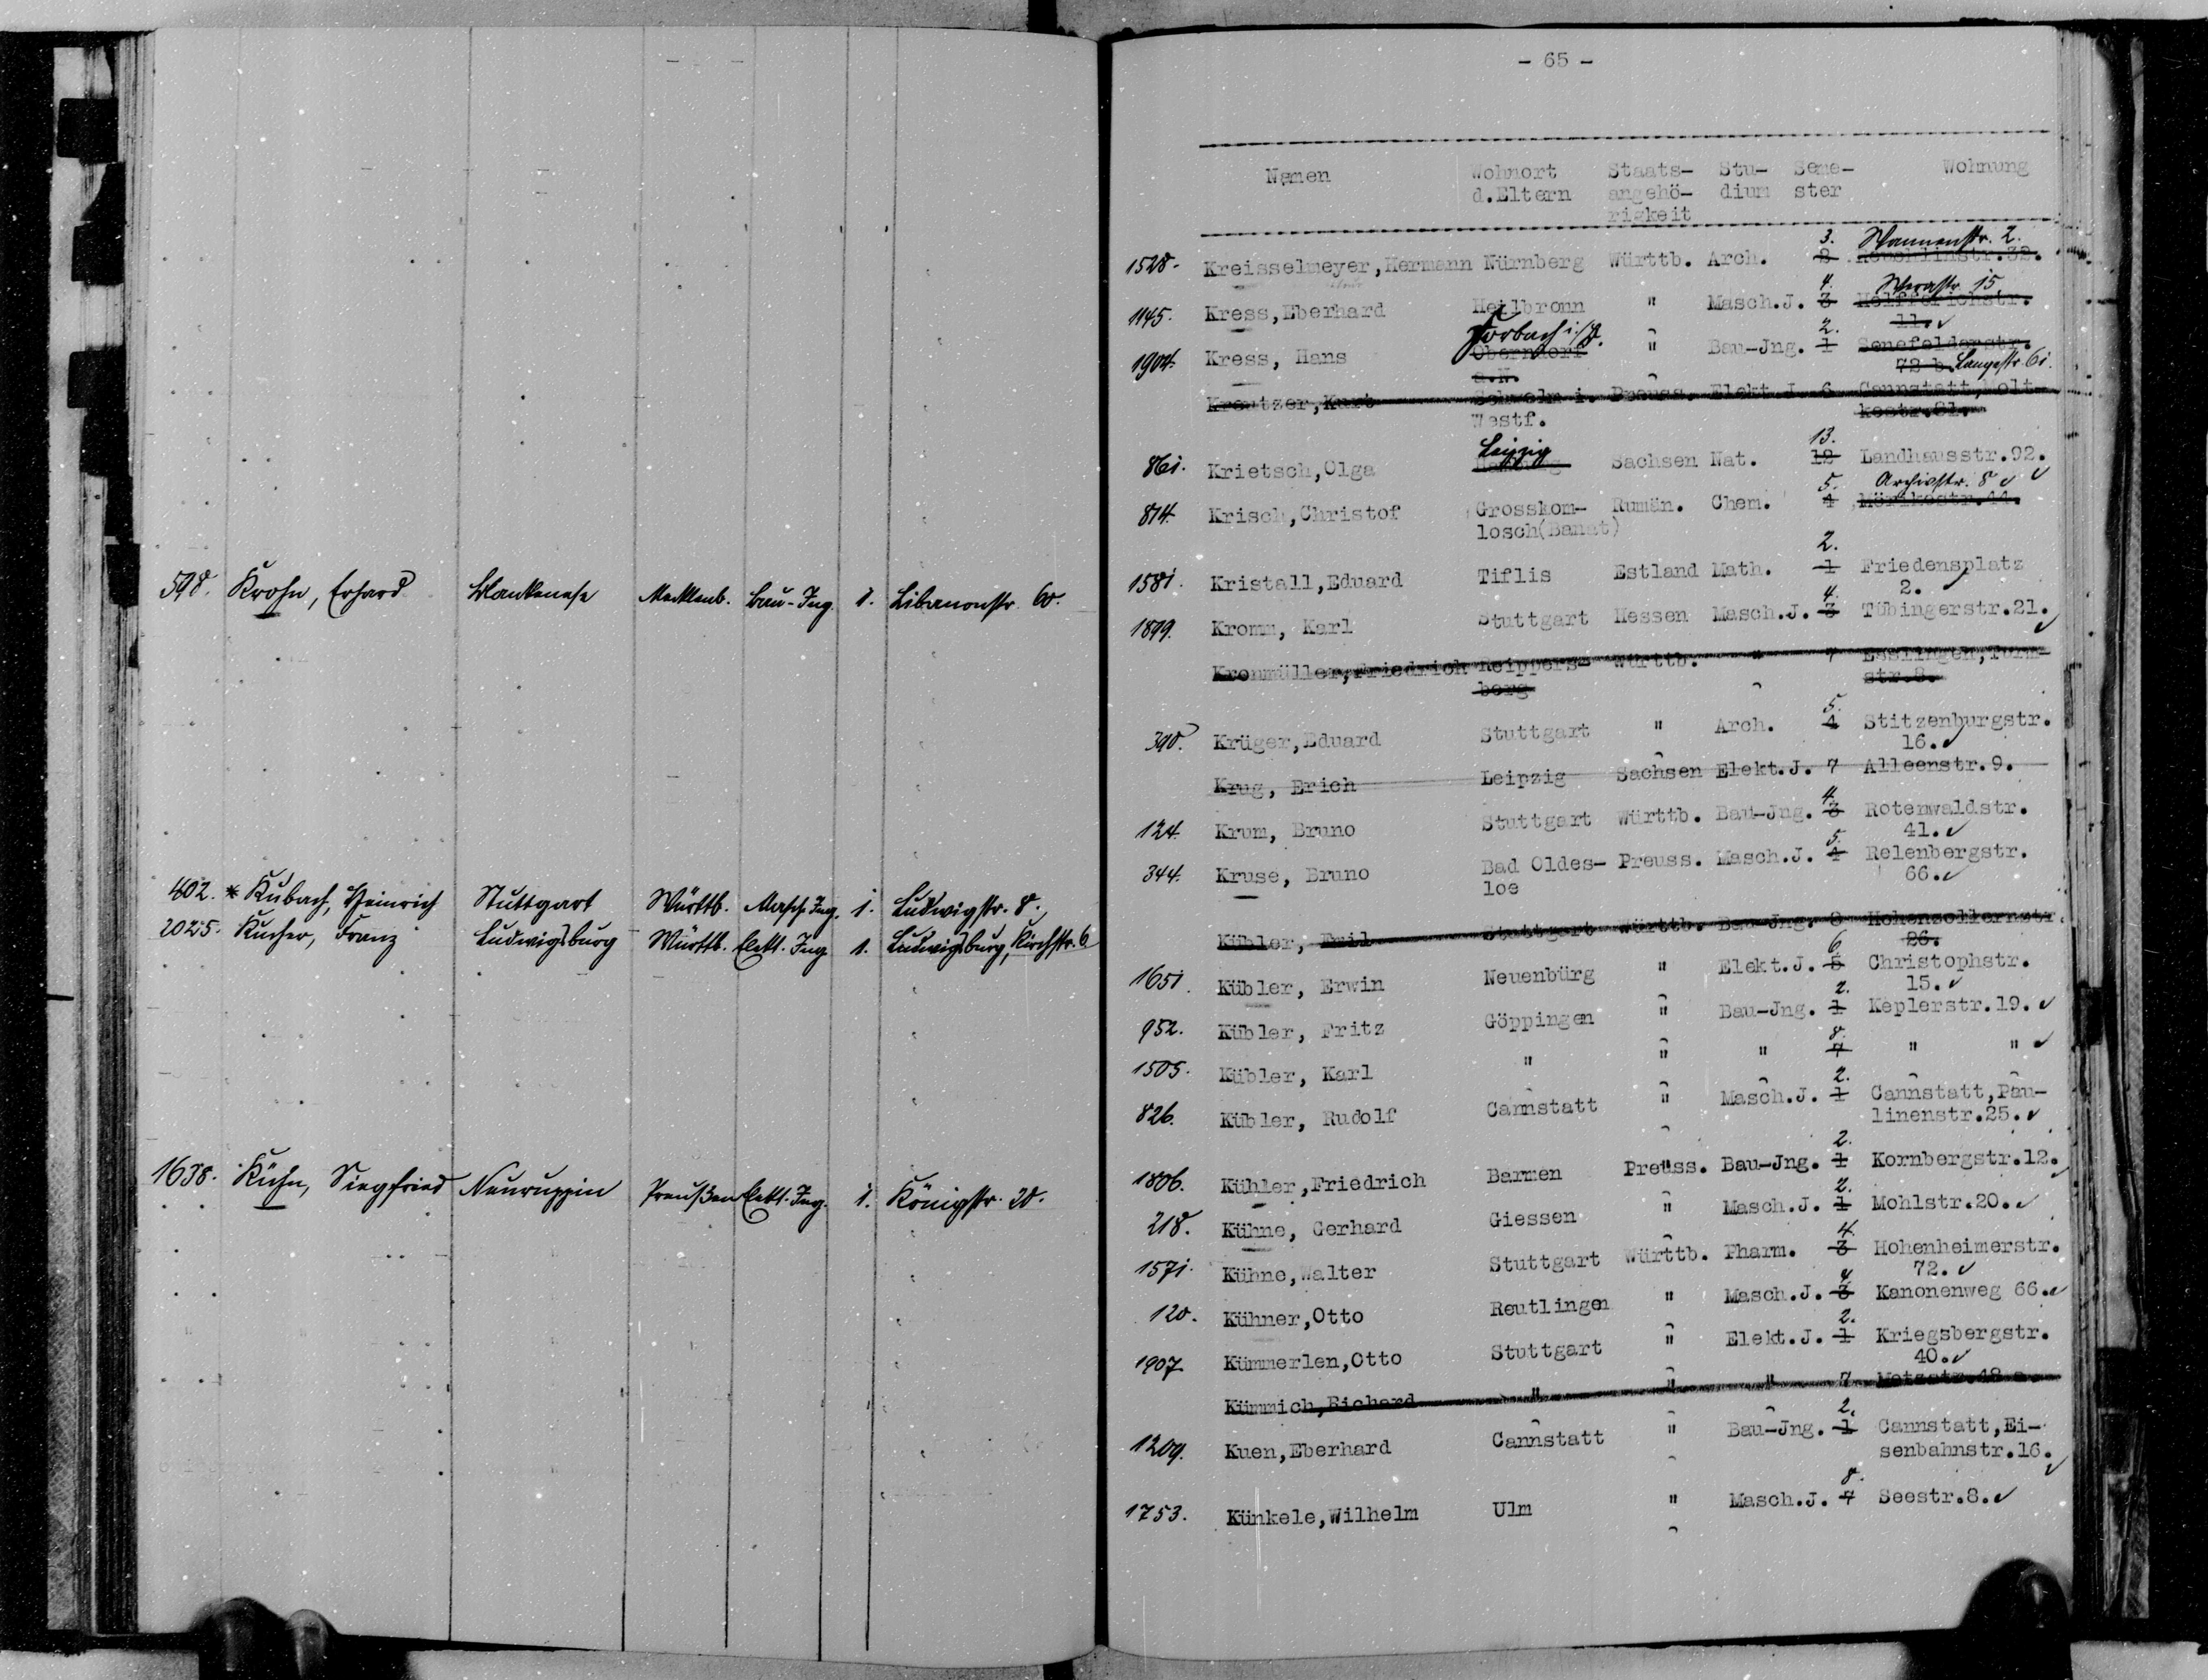 598. Krohn, Erhard Blankenese Mecklenb. Bau-Ing. 1. Libanonstr. 60.
402. * Kubach, Heinrich Stuttgart Württb. Masch. Ing. 1. Ludwigstr. 8.
2025. Kucher, Franz Ludwigsburg Württb. Elekt. Ing. 1. Ludwigsburg, Kirchstr. 6
1638. Kühn, Siegfried Neuruppin Preußen Elekt. Ing. 1. Königstr. 20.
- 65 -
Namen Wohnort Staats- Stu- Seme- Wohnung
d.Eltern angehö- dium ster
rigkeit
3. Wannenstr. 2.
1528. Kreisselmeyer,Hermann Nürnberg Württb. Arch. 2
4. Werastr 15.
1145. Kress,Eberhard Heilbronn " Masch.J. 3 Helfferichstr.
Forbach i./ 2. 11.
1904. Kress, Hans Oberndorf " Bau-Jng. 1 Senefelderstr.
a.N. 72 b. Langestr 61.
Kreutzer,Kurt Schwelm i. Preuss. Elekt.J. 6 Cannstatt, olt-
Westf. kestr.81.
Leipzig 13.
861. Krietsch,Olga Sachsen Nat. 12 Landhausstr.92.
5. Archivstr. 8
814. Krisch,Christof Grosskom- Rumän. Chem. 4 Mörikestr.44.
losch(Banat)
2.
1581. Kristall,Eduard Tiflis Estland Math. 1 Friedensplatz
4. 2.
1899. Kromm, Karl Stuttgart Hessen Masch.J. 3 Tübingerstr.21.
Kronmüller,Friedrich Reippers- Württb. " 7 Esslingen,Turm-
berg str.8.
5.
390. Krüger,Eduard Stuttgart " Arch. 4 Stitzenburgstr.
16.
Krug, Erich Leipzig Sachsen Elekt.J. 7 Alleenstr.9.
4.
124. Krum, Bruno Stuttgart Württb. Bau-Jng. 3 Rotenwaldstr.
5. 41.
344. Kruse, Bruno Bad Oldes- Preuss. Masch.J. 4 Relenbergstr.
loe 66.
Kübler, Emil Stuttgart Württb. Bau-Jng. 8 Hohenzollernstr.
6. 26.
1651. Kübler, Erwin Neuenbürg " Elekt.J. 5 Christophstr.
2. 15.
952. Kübler, Fritz Göppingen " Bau-Jng. 1 Keplerstr.19.
8.
1505. Kübler, Karl " " " 7 " "
2.
826. Kübler, Rudolf Cannstatt " Masch.J. 1 Cannstatt,Pau-
linenstr.25.
2.
1806. Kühler,Friedrich Barmen Preuss. Bau-Jng. 1 Kornbergstr.12.
2.
218. Kühne, Gerhard Giessen " Masch.J. 1 Mohlstr.20.
4.
1571. Kühne,Walter Stuttgart Württb. Pharm. 3 Hohenheimerstr.
4. 72.
120. Kühner,Otto Reutlingen " Masch.J. 3 Kanonenweg 66.
2.
1907. Kümmerlen,Otto Stuttgart " Elekt.J. 1 Kriegsbergstr.
40.
Kümmich,Richard " " " 7 Metzstr.48 a.
2.
1209. Kuen,Eberhard Cannstatt " Bau-Jng. 1 Cannstatt,Ei-
senbahnstr.16.
8.
1753. Künkele,Wilhelm Ulm " Masch.J. 7 Seestr.8.